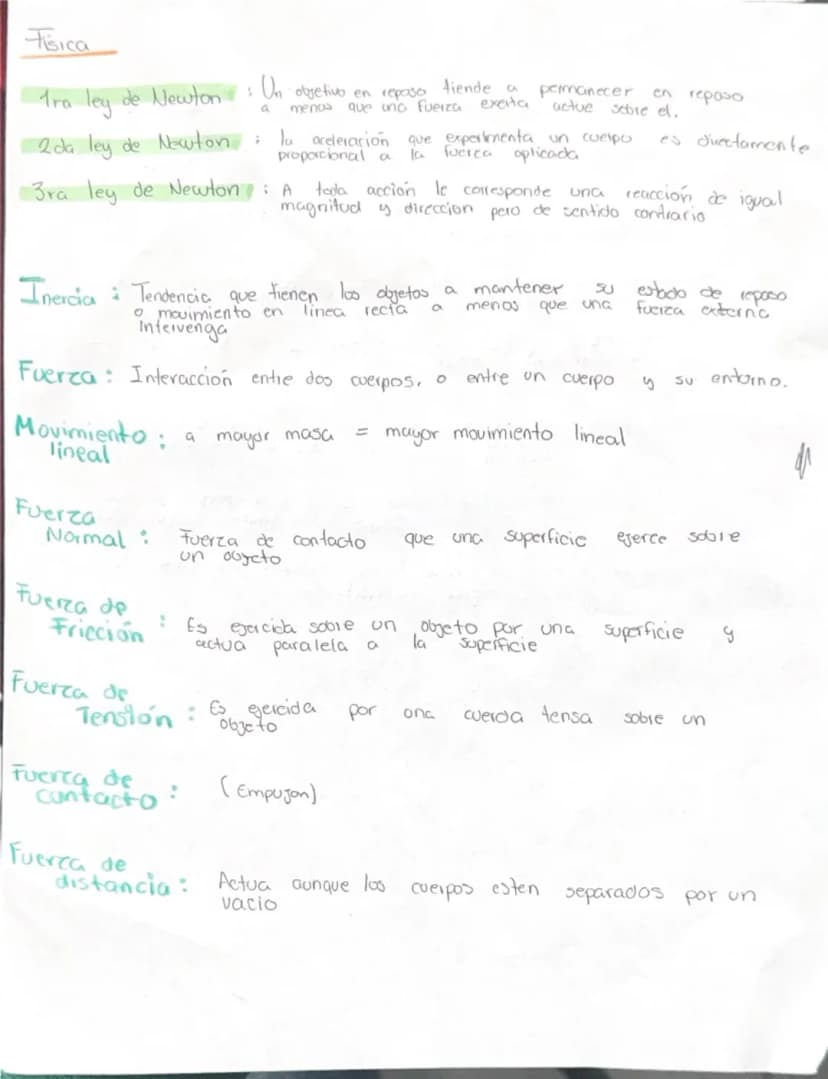 Física
1ra ley de Newton : Un objetivo en reposo tiende a permanecer en reposo
a menos que una fuerza exerta actue sobre el.
2da ley de Newton : la aceleración que experimenta un cuerpo es directamente
proporcional a la fuerza aplicada
3ra ley de Newton : A toda acción le corresponde una reacción de igual
magnitud y dirección pero de sentido contrario
Inercia : Tendencia que tienen los objetos a mantener su estado de reposo
o movimiento en linea recta a menos que una fuerza externa
intervenga
Fuerza : Interacción entre dos cuerpos, o entre un cuerpo y su entorno.
Movimiento : a mayor masa = mayor movimiento lineal
lineal
Fuerza
Normal : Fuerza de contacto que una superficie ejerce sobre
un objeto
Fuerza de
Fricción : Es ejercida sobre un objeto por una superficie y
actua paralela a la superficie
Fuerza de
Tensión : Es ejercida por una cuerda tensa sobre un
objeto
Fuerza de
contacto : (Empujon)
Fuerza de
distancia : Actua aunque los cuerpos esten separados por un
vacio